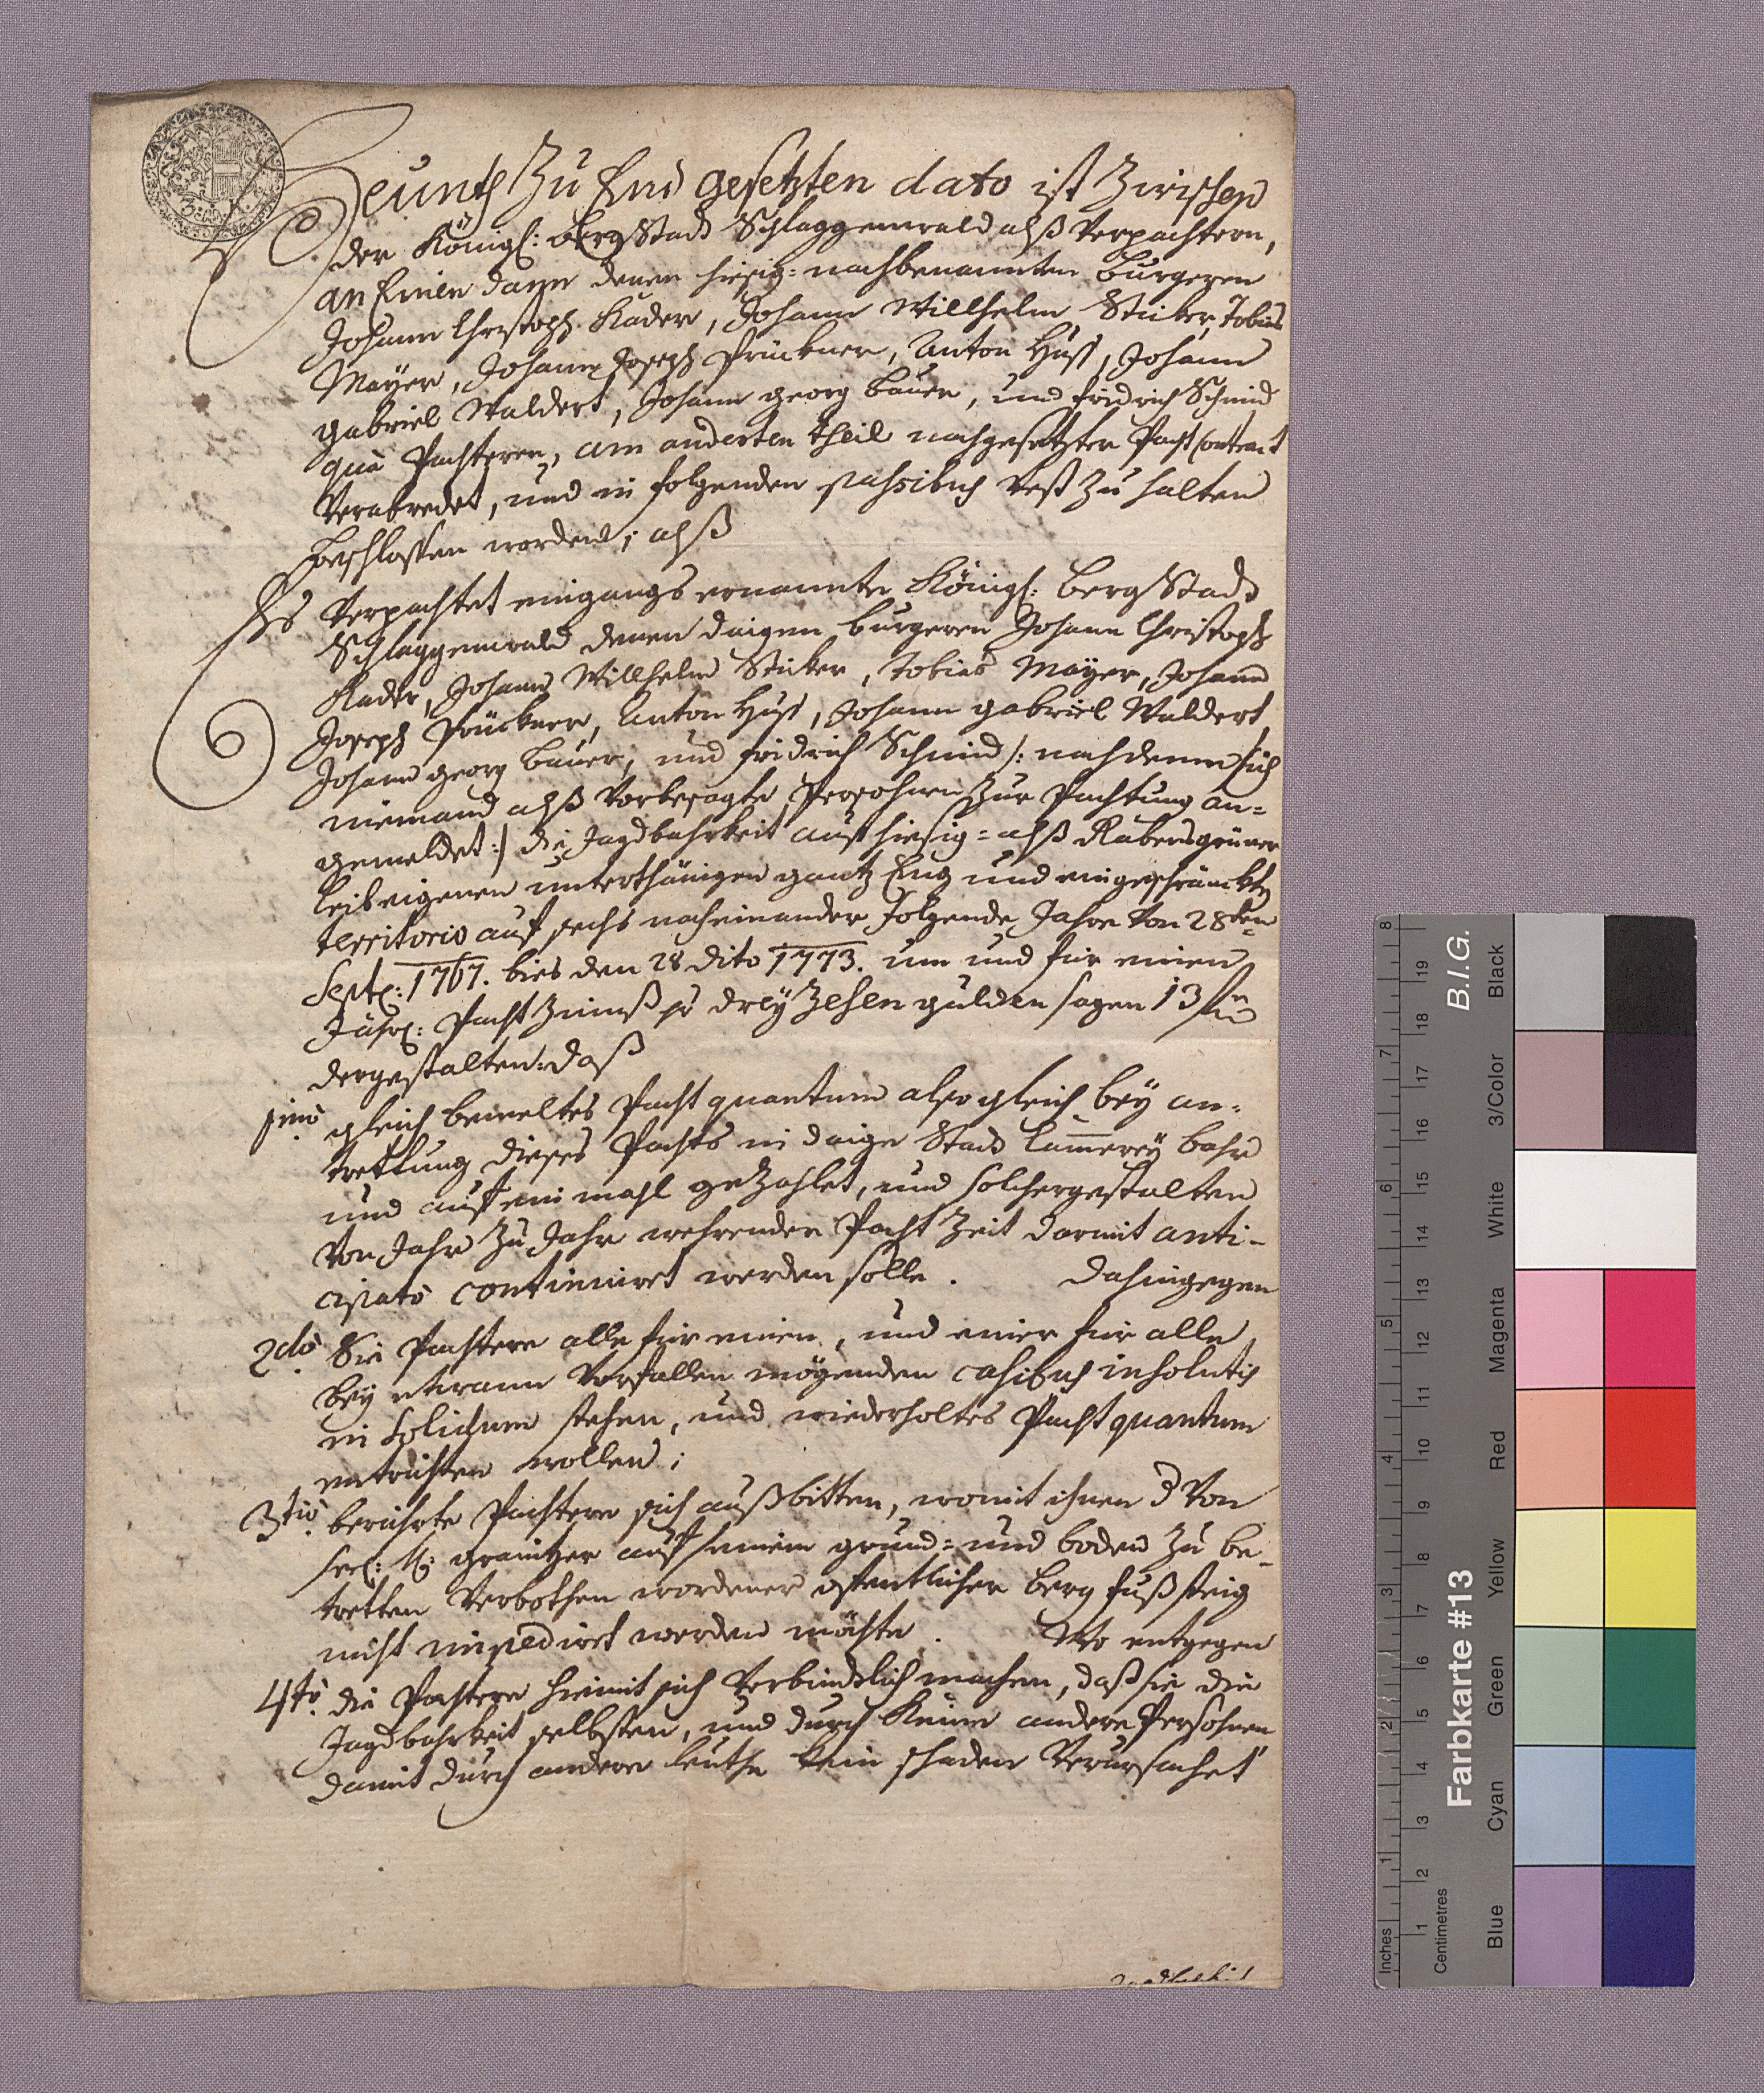 Heunth Zu End gesetzten dato ist Zwischen
der Königl: Bergstadt Schlaggenwald alß Verpachtern,
an Einen dann denen hiesig: nachbenannten Burgeren
Johann Christoph Kader, Johann Willhelm Stieber, Tobias
Mayer, Johann Joseph Prückner, Anton Huss, Johann
gabriel Waldert, Johann georg Bauer, und fridrich Schmid
quà Pachteren, am anderten theil nachgesetzter Pacht Contract
Verabredet, und in folgenden passibus Vest Zu halten
beschlossen worden; alß
Es Verpachtet eingangs ernannte Königl: Berg Stadt
Schlaggenwald denen daigen burgeren Johann Christoph
Kader, Johann Willhelm Stieber, Tobias Mayer, Johann
Joseph Prückner, Anton Huss, Johann gabriel Waldert,
Johann georg Bauer, und fridrich Schmid /: nachdeme sich
niemand alß Vorbesagte Persohnen Zur Pachtung an=
gemeldet :/ die Jagdbahrkeit auf hiesig= alß Rabensgrüner
leibeigenen unterthänigen gantz Eng und eingeschränckten
territorio auf sechs nacheinander folgende Jahre Von 28ten
Septr: 1767. bies den 28 dito 1773. um und für einen
Jährl: Pacht Zinnß pr drey Zehen gulden sagen 13 fl
dergestalten: daß
1mo gleich bemeltes Pacht quantum alsogleich bey an=
trettung dieses Pachts in daige Stadt Cammerey bahr
und auf ein mahl gezahlet, und solchergestalten
Von Jahr Zu Jahr wehrender Pacht Zeit darmit anti-
cipato continuiret werden solle. Dahingegen
2do Sie Pachtere alle für einen, und einer für alle
bey etwann Vorfallen mögenden casibus insolutis
in solidum stehen, und wiederholtes Pacht quantum
entrichten wollen;
3tio berührte Pachtere sich außbitten, womit ihnen d Von
grånitzer auf seinem grund= und boden Zu be-
tretten Verbothen wordener ofentlicher berg fußsteig
nicht impediret werden möchte. Wo entgegen
4to. die Pachtere hiemit sich Verbindlich machen, daß sie die
Jagdbahrkeit selbsten, und durch Keine andere Persohnen
damit durch andere leuthe kein schaden Verursachet